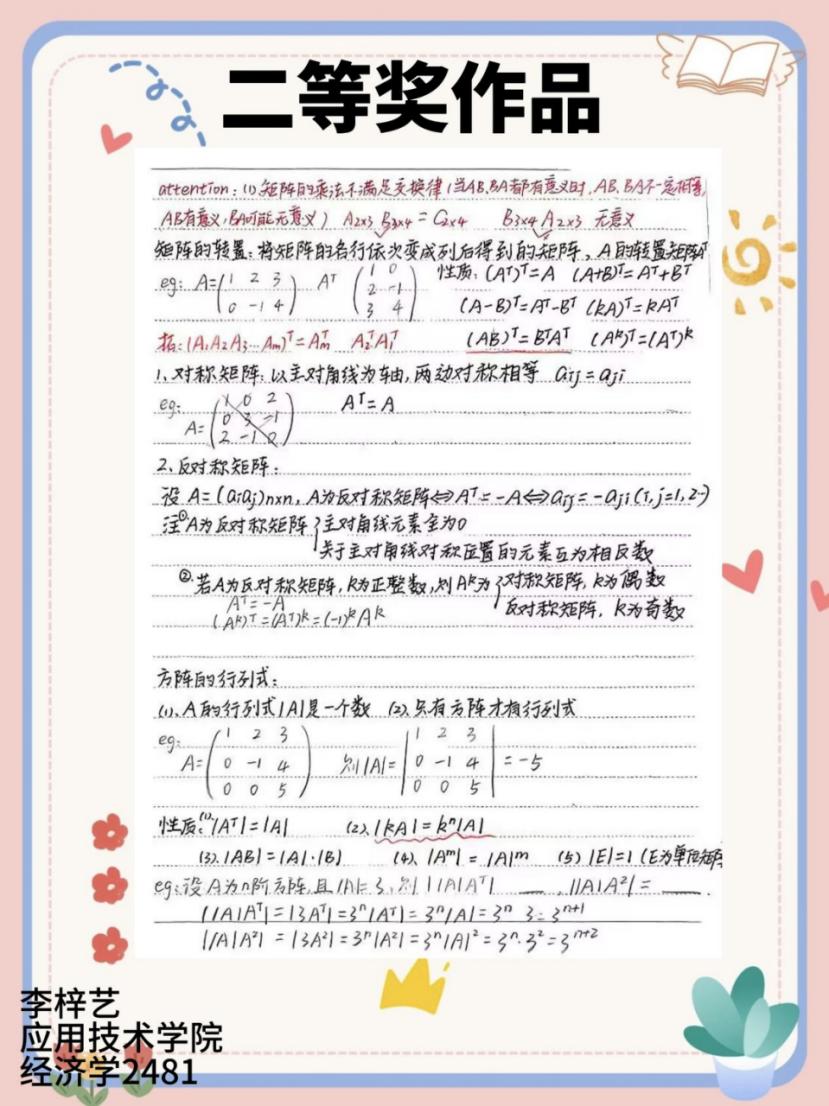 二等奖作品
attention:(1)矩阵的乘法不满足交换律(当AB,BA都有意义时,AB、BA不一定相等,
AB有意义,BA可能无意义) A2x3 B3x4 = C2x4 B3x4 A2x3 无意义
矩阵的转置:将矩阵的各行依次变成列后得到的矩阵,A的转置矩阵Aᵀ
eg: A=(1 2 3 Aᵀ (1 0 性质:(Aᵀ)ᵀ=A (A+B)ᵀ=Aᵀ+Bᵀ
0 -1 4) 2 -1
3 4) (A-B)ᵀ=Aᵀ-Bᵀ (kA)ᵀ=kAᵀ
拓:(A₁A₂A₃…Am)ᵀ=Aᵀm A₂ᵀA₁ᵀ (AB)ᵀ=BᵀAᵀ (Aᵏ)ᵀ=(Aᵀ)ᵏ
1、对称矩阵:以主对角线为轴,两边对称相等 aij=aji
eg: Aᵀ=A
A=(1 0 2
0 3 -1
2 -1 0)
2、反对称矩阵:
设A=(aiaj)nxn,A为反对称矩阵⇔Aᵀ=-A⇔aij=-aji(i,j=1,2…)
注①A为反对称矩阵{主对角线元素全为0
关于主对角线对称位置的元素互为相反数
②若A为反对称矩阵,k为正整数,则Aᵏ为{对称矩阵,k为偶数
Aᵀ=-A 反对称矩阵,k为奇数
(Aᵏ)ᵀ=(Aᵀ)ᵏ=(-1)ᵏAᵏ
方阵的行列式:
(1)、A的行列式|A|是一个数 (2)、只有方阵才有行列式
eg: (1 2 3 |1 2 3|
A= 0 -1 4 则|A|= |0 -1 4| =-5
0 0 5) |0 0 5|
性质:(1)、|Aᵀ|=|A| (2)、|kA|=kⁿ|A|
(3)、|AB|=|A|·|B| (4)、|Aᵐ|=|A|ᵐ (5)|E|=1(E为单位矩阵
eg:设A为n阶方阵,且|A|=3,则||A|Aᵀ| ___,||A|A²|=___.
||A|Aᵀ|=|3Aᵀ|=3ⁿ|Aᵀ|=3ⁿ|A|=3ⁿ 3=3ⁿ⁺¹
||A|A²|=|3A²|=3ⁿ|A²|=3ⁿ|A|²=3ⁿ·3²=3ⁿ⁺²
李梓艺
应用技术学院
经济学2481